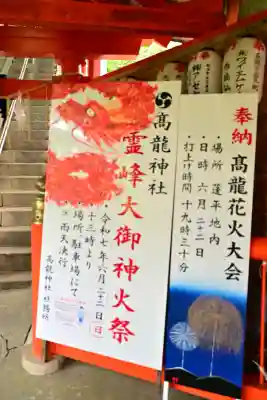 奉納 高龍花火大会
・場所 蓬平地内
・日時 六月二十二日
・打上げ時間 十九時三十分
髙龍神社
霊峰大御神火祭
・令和七年六月二十二日(日)
十三時より
・場所 駐車場にて
※雨天決行
高龍神社 社務所